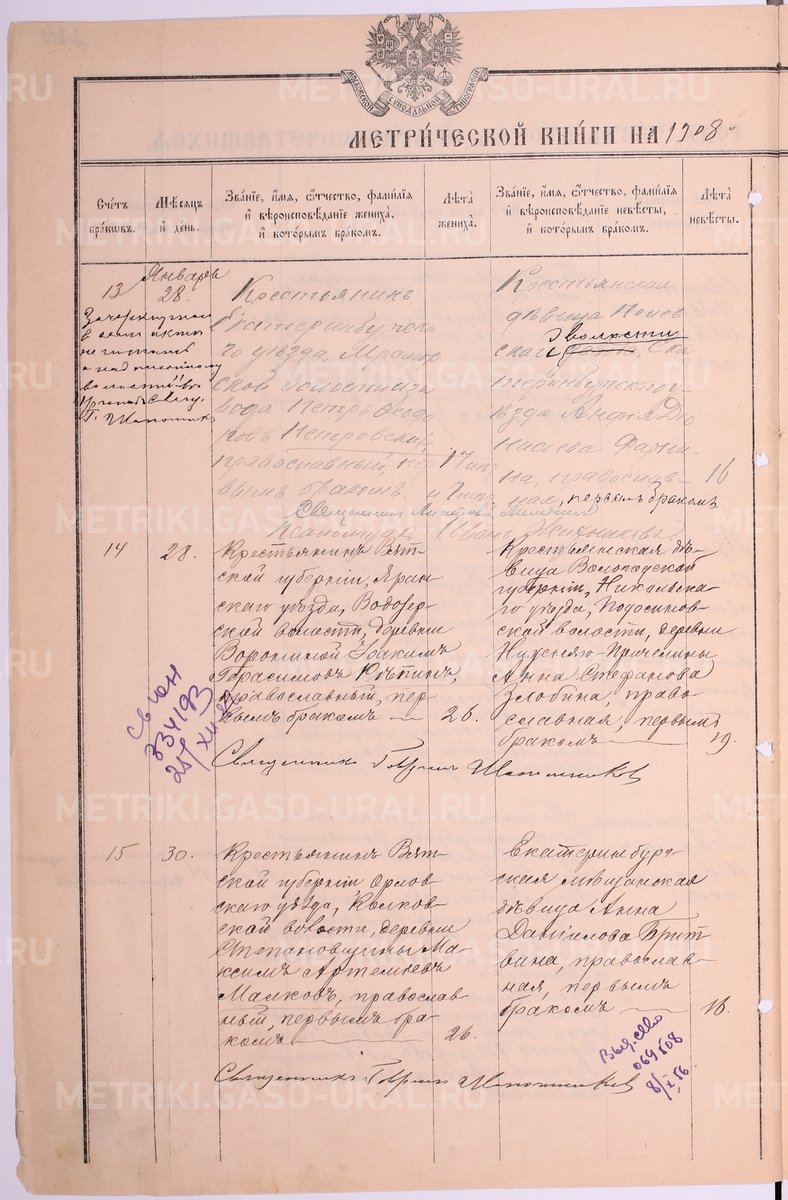 МОСКОВСКОЙ СѴНОДАЛЬНОЙ ТИПОГРАФІИ
МЕТРИ́ЧЕСКОЙ КНИ́ГИ НА 1908
Счетъ бракѡвъ.
Мѣсяцъ и день.
Званіе, имя, ѻтчество, фамилія
и вѣроисповѣданіе жениха,
и которымъ бракомъ.
Лѣта жениха.
Званіе, имя, ѻтчество, фамилія
и вѣроисповѣданіе невѣсты,
и которымъ бракомъ.
Лѣта невѣсты.
13
Января
28.
Зачеркнутое
в семъ актѣ
не читать
Крестьянинъ
Екатеринбургска
го уѣзда, Мрамор
ской волости
вода Петръ Ѳеодо
ровъ Петровскихъ,
православный, пер
вымъ бракомъ
Крестьянская
дѣвица
волости
ской Ека
теринбургскаго
уѣзда Анфія Діо
нисіева
на, православ-
ная, первымъ бракомъ
16
Иванъ
14
28.
Крестьянинъ Вят-
ской губерніи, Яран-
скаго уѣзда, Водозер-
ской волости, деревни
Ворониной Іоакимъ
Герасимовъ Рѣпинъ,
православный, пер-
вымъ бракомъ
26.
Крестьянская дѣ-
вица Вологодской
губерніи, Никольска-
го уѣзда, Подосинов-
ской волости, деревни
Анна Стефанова
Злобина, право-
славная, первымъ
бракомъ
19.
Священникъ Гавріилъ Шапошников
834193
15
30.
Крестьянинъ Вят-
ской губерніи Орлов-
скаго уѣзда, Колков-
ской волости, деревни
Степановщины Ма-
ксимъ Артеміевъ
Малковъ, православ-
ный, первымъ бра-
комъ
26.
Екатеринбург-
ская мѣщанская
дѣвица Анна
Даніилова Брит
вина, православ-
ная, первымъ
бракомъ
16.
Священникъ Гавріилъ Шапошников
Выд. св-во
069508
8/X 56
METRIKI.GASO-URAL.RU